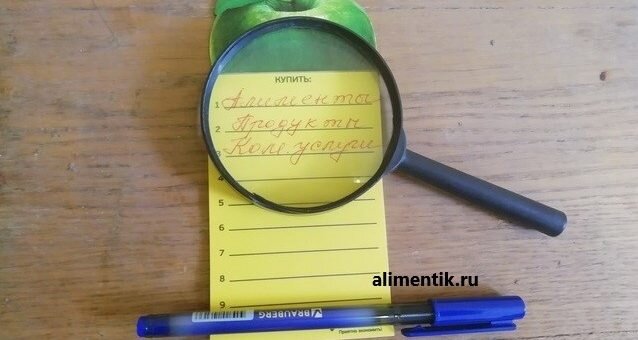 КУПИТЬ:
1 Алименты
2 Продукты
3 Ком услуги
5
6
7
8
9
alimentik.ru
BRAUBERG
Приятно экономить!